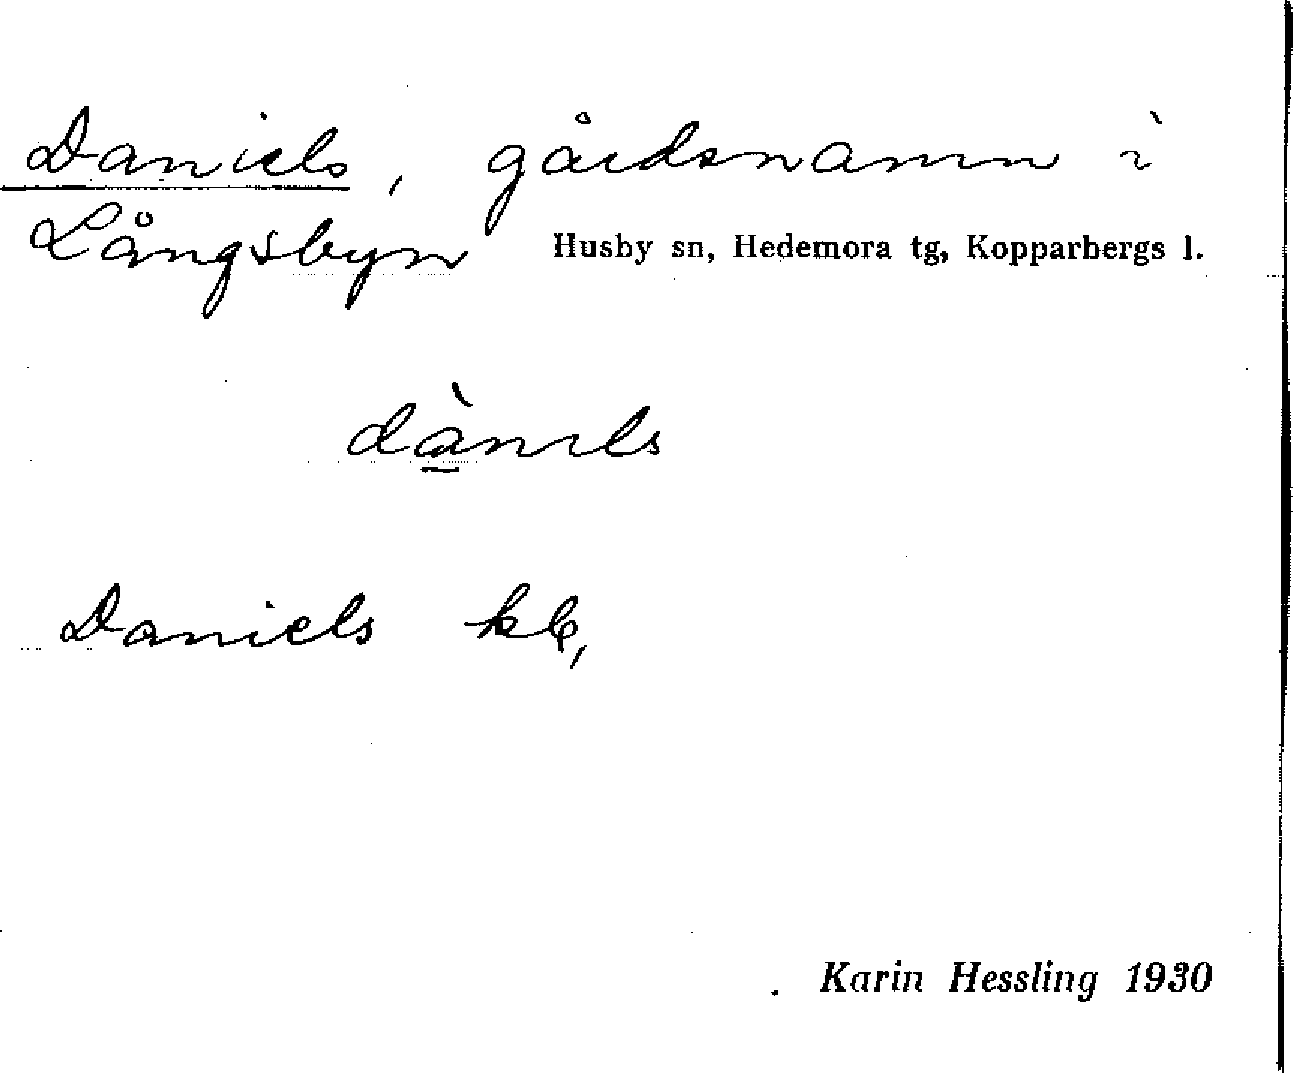 Daniels, gårdsnamn i
Långsbyn Husby sn, Hedemora tg, Kopparbergs l.
dànıls
Daniels
Karin Hessling 1930